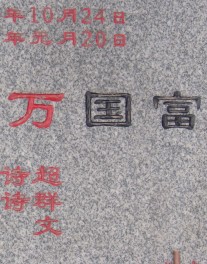 年10月24日
年元月26日
万国富
诗诗
超群文